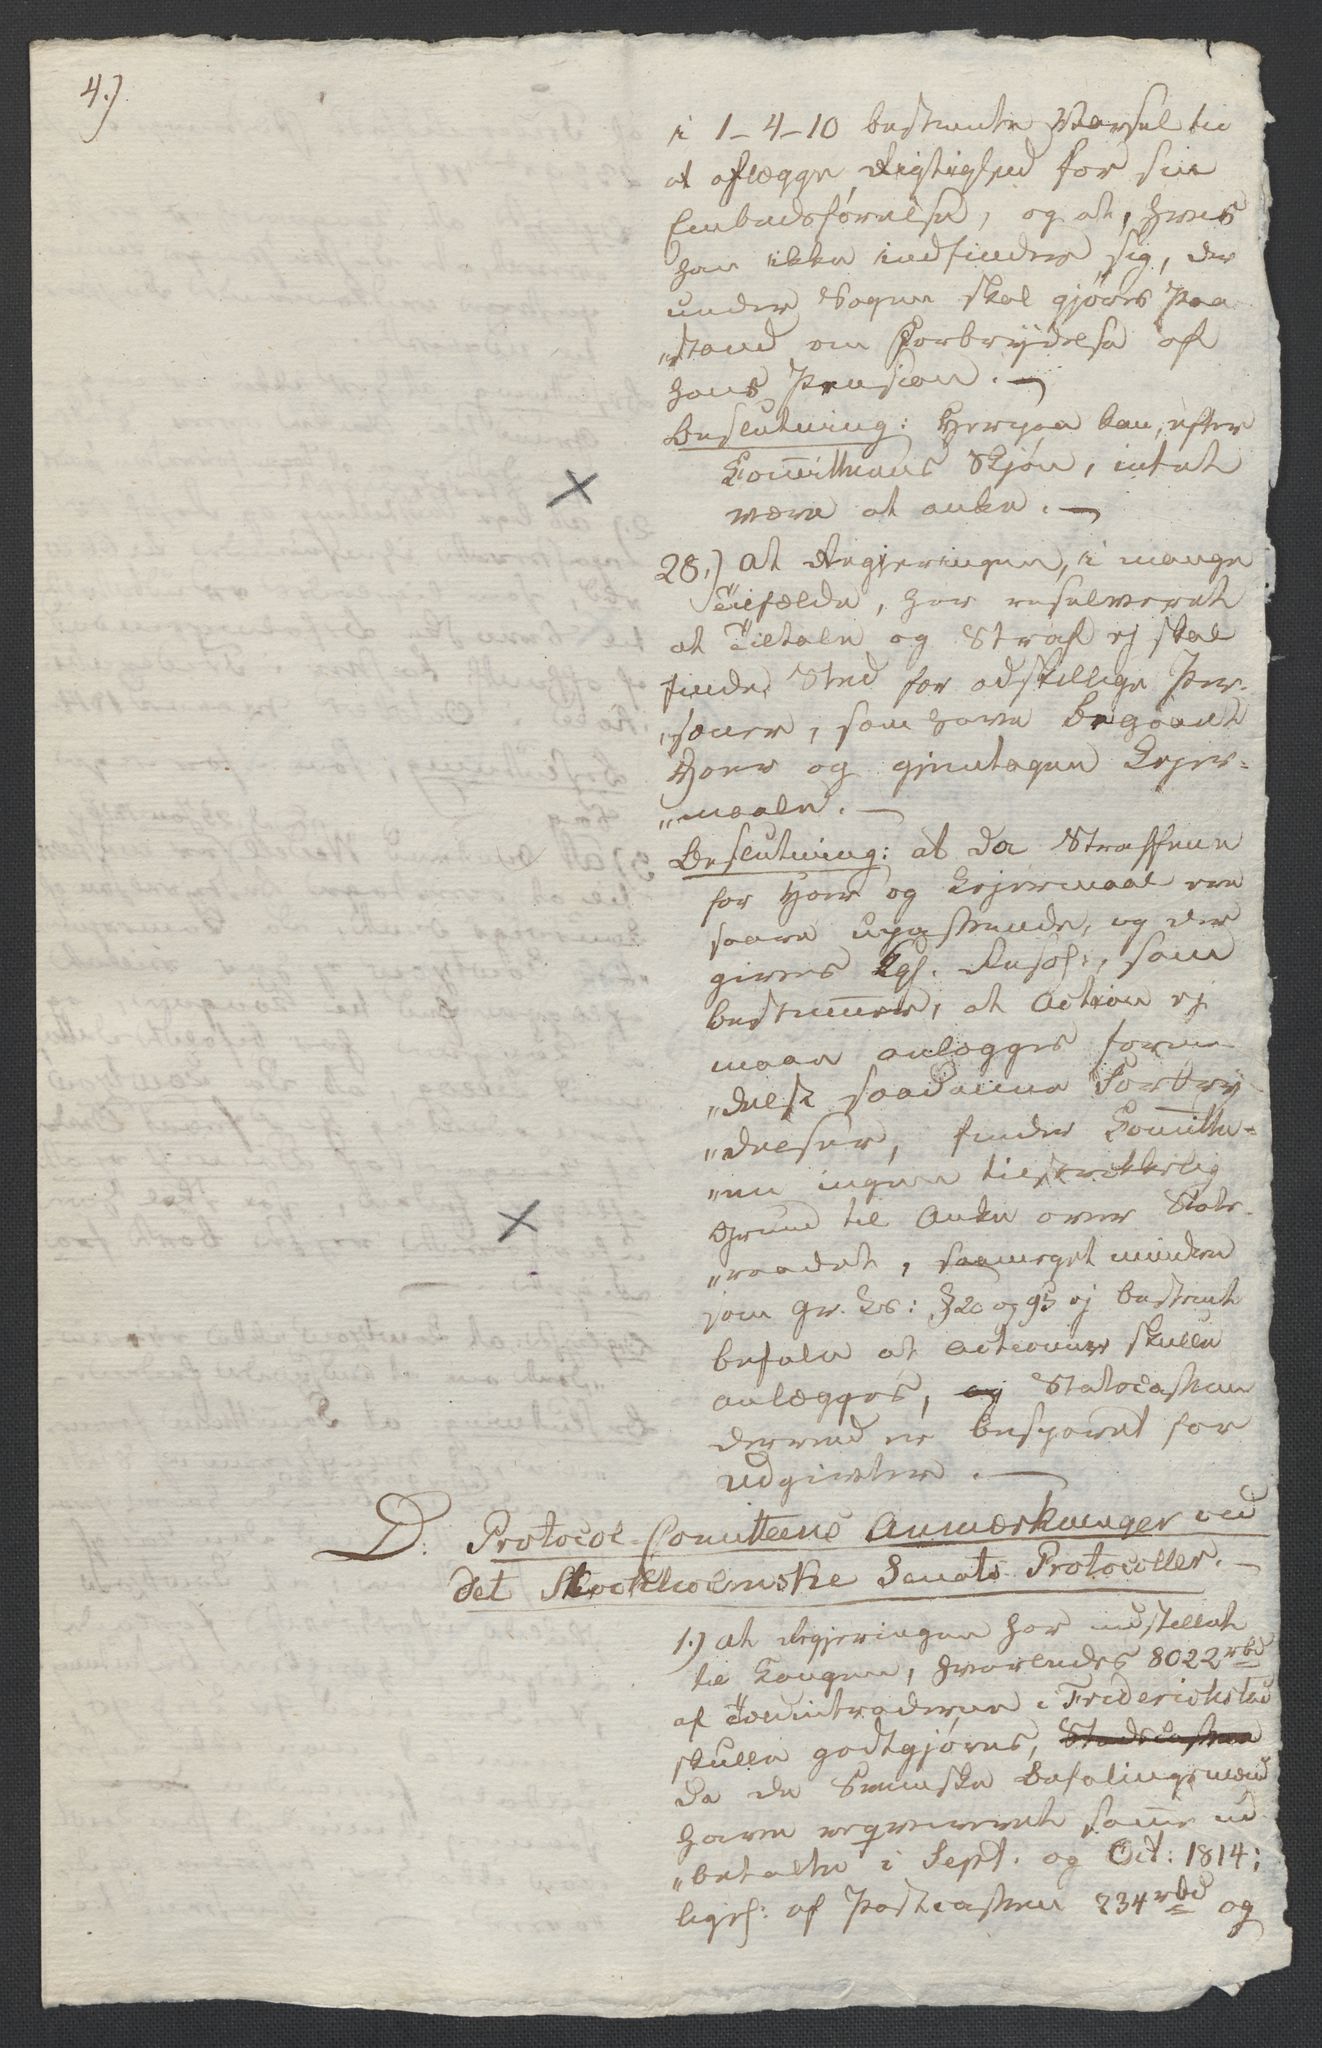 4.)
i 1-4-10 bestemte Varsel til
at aflægge Rigtighed for sin
Embedsførelse, og at, hvis
han ikke indfinder sig, der
under Sagen skal gjøres Paa
"stand om Forbrydelse af
hans Pension. —
Beslutning: Herpaa kan, efter
Com̅itteens Skjøn, intet
være at anke. —
28.) at Regjeringen, i mange
Tilfælde, har resolveret
at Tiltale og Straf ej skal
finde Sted for adskillige Per-
"soner, som have begaaet
Hoer og gjentagen Lejer-
"maale. —
Beslutning: at da Straffene
for Hoer og Lejermaal ere
saare upassende, og der
gives Kgl. Resol:, som
bestem̅er, at Action ej
maae anlægges forme-
"delst saadanne Forbry
"delser, finder Com̅itte-
"en ingen tilstrækkelig
Grund til Anke over Stats-
"raadet, saameget mindre
som Gr. Lov: § 20 og 95 ej bestemt
befale at Actioner skulle
anlægges, og Statscassen
derved er besparet for
Udgivter. —
D: Protocol-Comitteens Anmærkninger ved
det Stockholmske Senats Protocoller. —
1.) at Regjeringen har indstillet
til Kongen, hvorledes 8022 rbd
af Toldintraderne i Friderichstad
skulle godtgjøres, Stadscassen
da de Svenske Befalingsmænd
have reqvireret sam̅e ud
"betalte i Sept. og Oct: 1814;
ligel: af Postcassen 234 rbd og